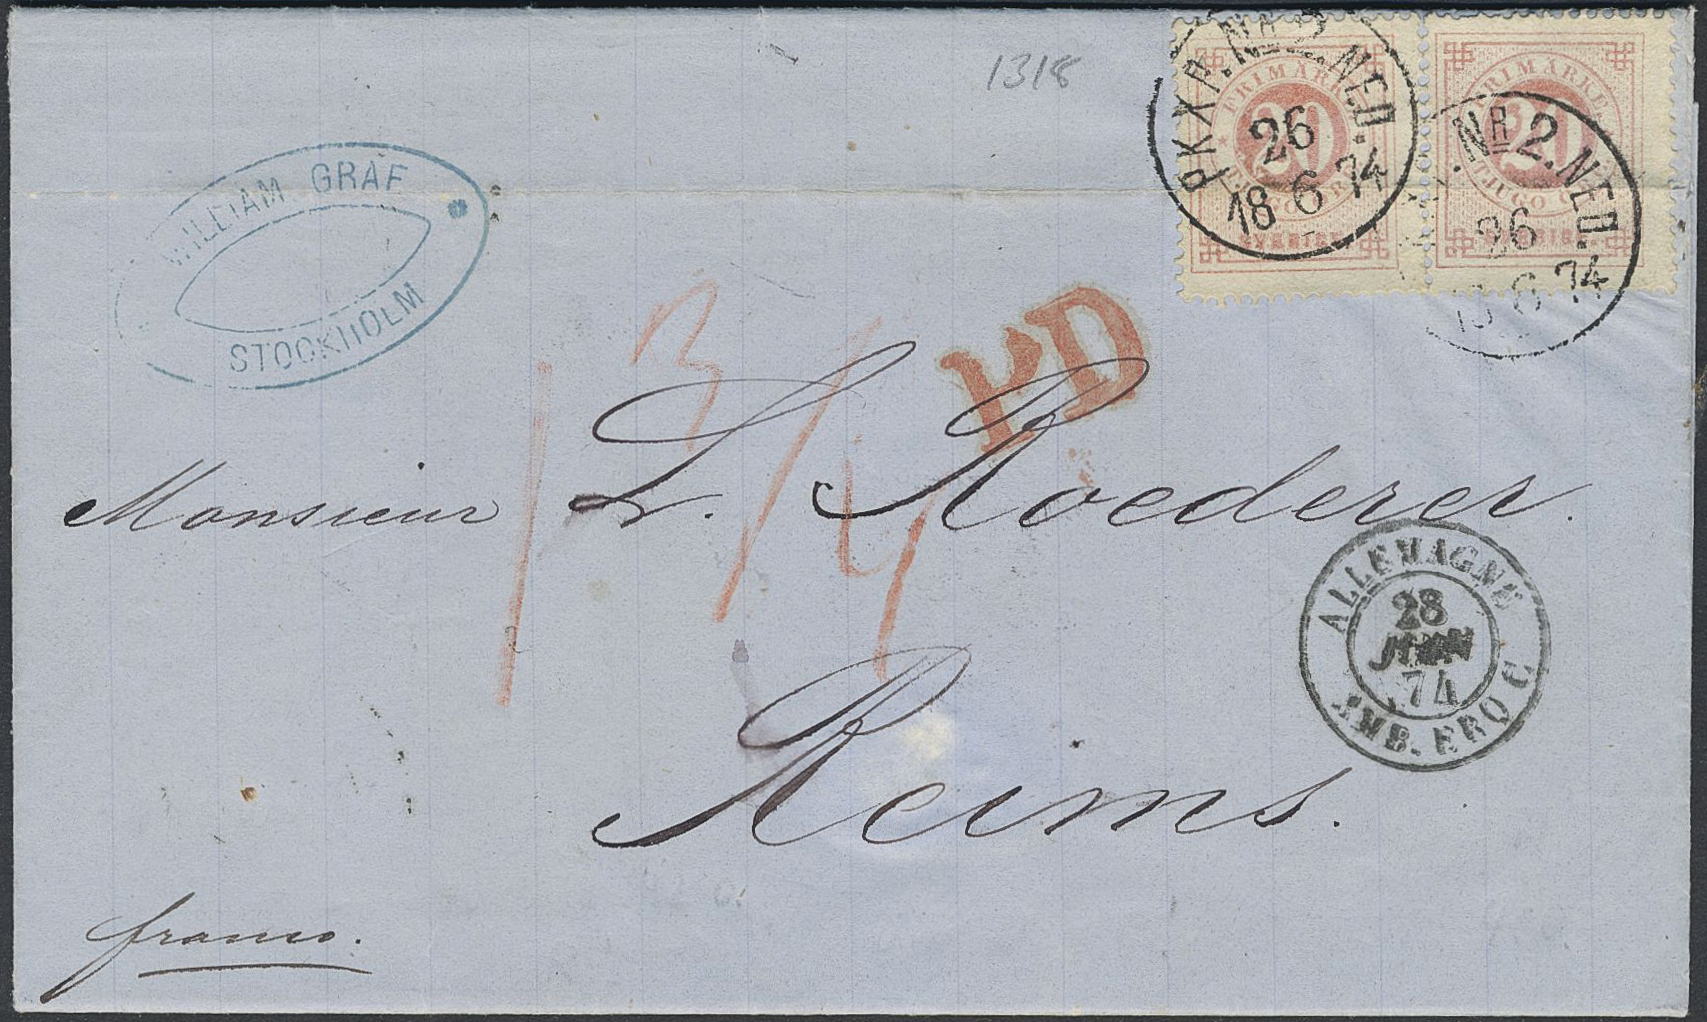 1318
WILLIAM GRAF
STOCKHOLM
FRIMÄRKE
20
SVERIGE
PKXP. NR 2. NED.
26
18 6 74
FRIMÄRKE
20
TJUGO
SVERIGE
NR 2. NED.
26
18 6 74
PD
Monsieur L. Roederer.
Reims.
franco.
ALLEMAGNE
28
JUIN
74
AMB. ERQ C